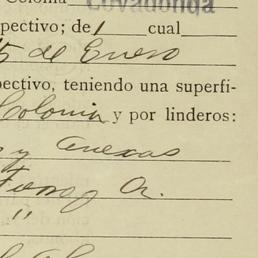 Colonia Covadonga
pectivo; de 1 cual
15 de Enero
pectivo, teniendo una superfi-
Colonia y por linderos:
y Anexas
"